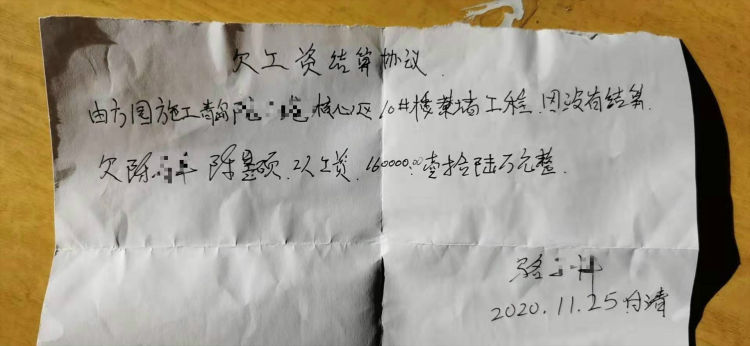 欠工资结算协议
由方国施工 核心区10#楼幕墙工程.因没有结算.
欠陈 陈 2人工资.160000.00壹拾陆万元整.
骆
2020.11.25付清